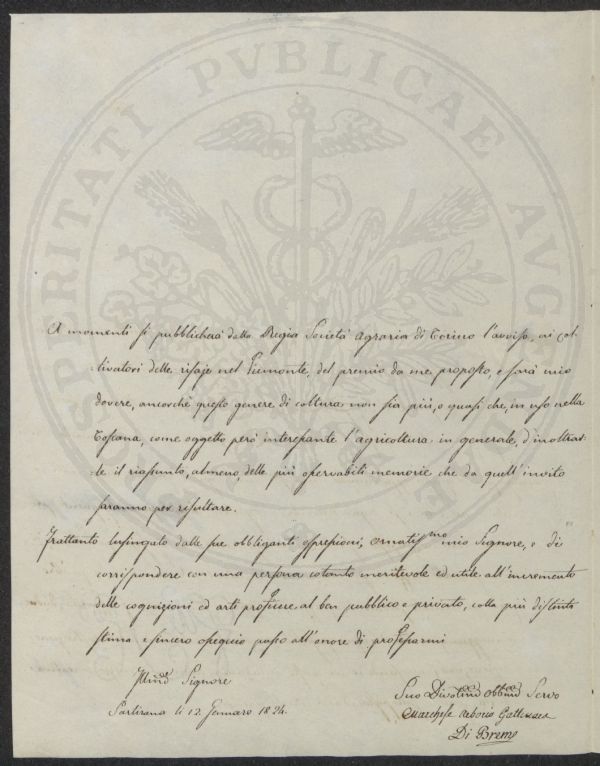 A momenti si pubblicherà dalla Regia Società Agraria di Torino l'avviso, ai col-
tivatori delle risaje nel Piemonte, del premio da me proposto, e sarà mio
dovere, ancorchè questo genere di coltura non sia più, o quasi che, in uso nella
Toscana, come oggetto però interessante l'agricoltura in generale, d'inoltrar-
le il riassunto, almeno, delle più osservabili memorie che da quell'invito
saranno per risultare.
Frattanto lusingato dalle sue obbliganti espressioni, ornatis.mo mio Signore, e di
corrispondere con una persona cotanto meritevole ed utile all'incremento
delle cognizioni ed arti proficue al ben pubblico e privato, colla più distinta
stima e sincero ossequio passo all'onore di professarmi
Signore
Sartirana li 12 Gennaro 1824.
Suo Servo
Marchese Arborio Gattinara
Di Breme
PROSPERITATI PVBLICAE AVGENDAE